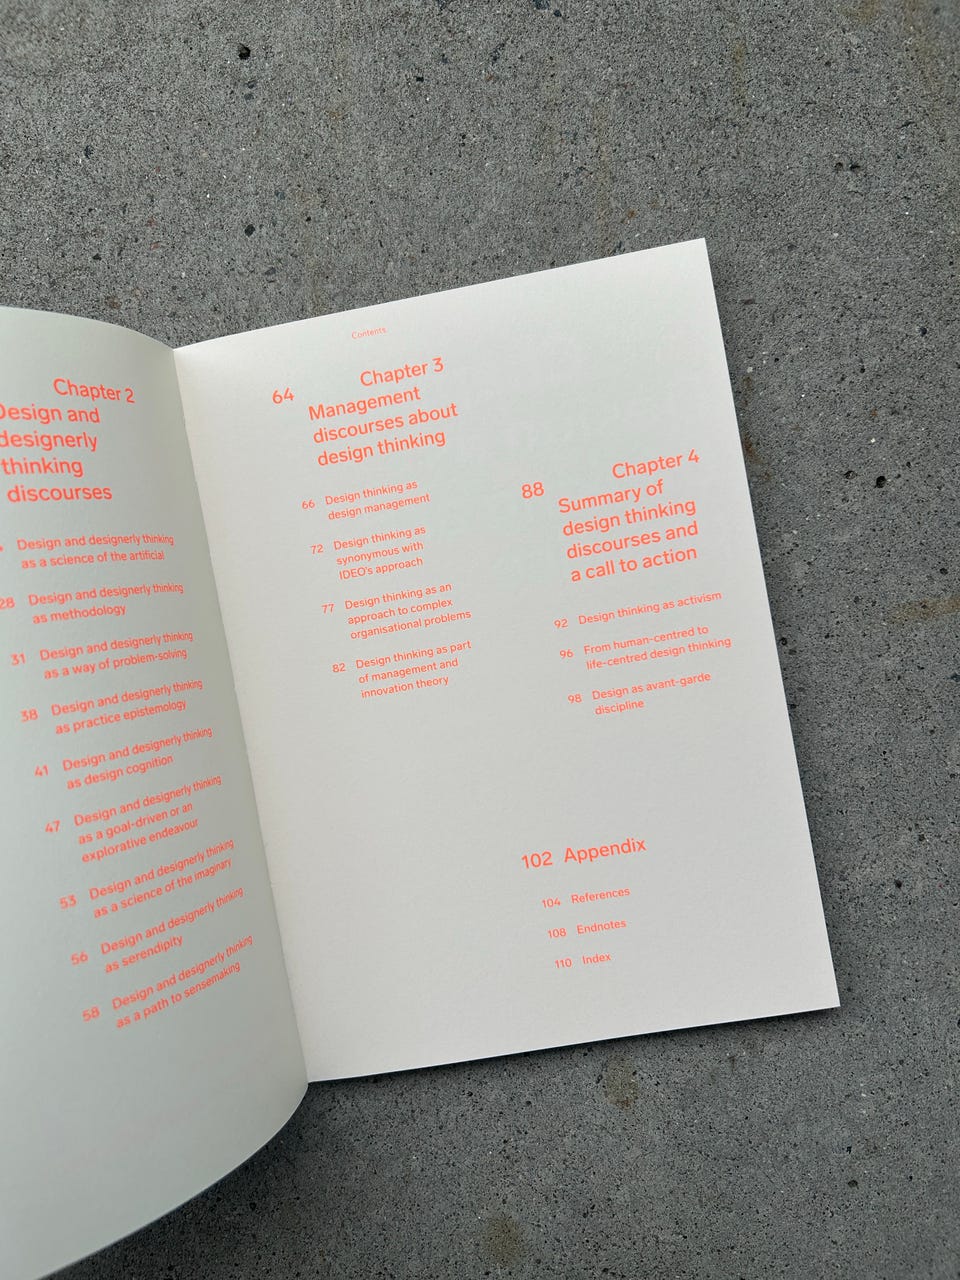 Chapter 2
Design and
designerly
thinking
discourses
Design and designerly thinking
as a science of the artificial
28 Design and designerly thinking
as methodology
31 Design and designerly thinking
as a way of problem-solving
38 Design and designerly thinking
as practice epistemology
41 Design and designerly thinking
as design cognition
47 Design and designerly thinking
as a goal-driven or an
explorative endeavour
53 Design and designerly thinking
as a science of the imaginary
56 Design and designerly thinking
as serendipity
58 Design and designerly thinking
as a path to sensemaking
Contents
64 Chapter 3
Management
discourses about
design thinking
66 Design thinking as
design management
72 Design thinking as
synonymous with
IDEO's approach
77 Design thinking as an
approach to complex
organisational problems
82 Design thinking as part
of management and
innovation theory
88 Chapter 4
Summary of
design thinking
discourses and
a call to action
92 Design thinking as activism
96 From human-centred to
life-centred design thinking
98 Design as avant-garde
discipline
102 Appendix
104 References
108 Endnotes
110 Index